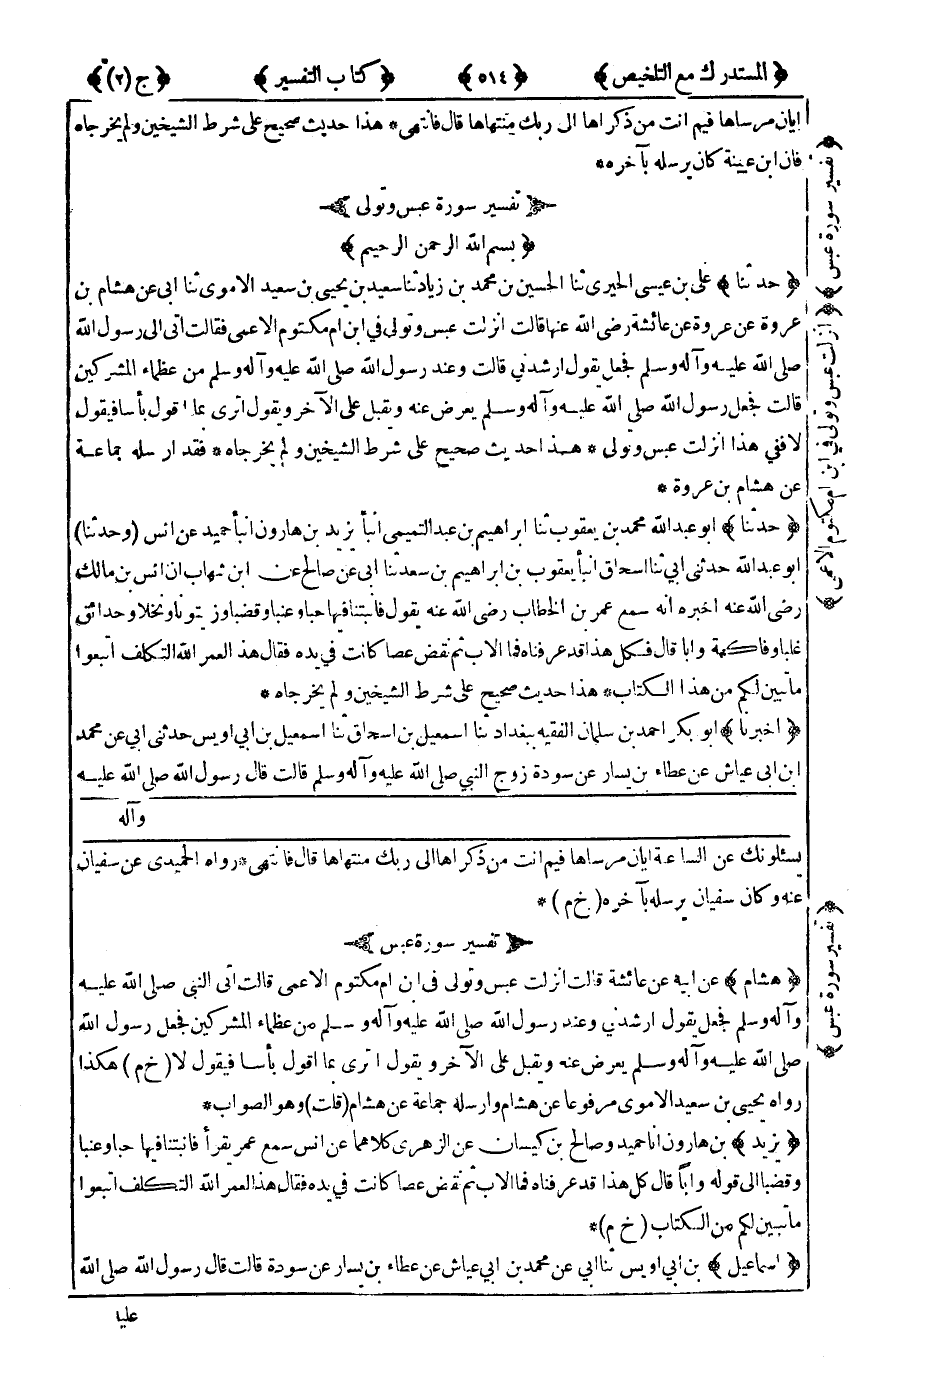 ﴿ المستدرك مع التلخيص ﴾ ﴿ ٥١٤ ﴾ ﴿ كتاب التفسير ﴾ ﴿ ج (٢) ﴾
ايان مرساها فيم انت من ذكراها الى ربك منتهاها قال فانتهى * هذا حديث صحيح على شرط الشيخين ولم يخرجاه
فان ابن عيينة كان يرسله بآخره *
تفسير سورة عبس وتولى
﴿ بسم الله الرحمن الرحيم ﴾
﴿ حدثنا ﴾ على بن عيسى الحيرى ثنا الحسين بن محمد بن زياد ثنا سعيد بن يحيى بن سعيد الاموى ثنا ابى عن هشام بن
عروة عن عروة عن عائشة رضى الله عنها قالت انزلت عبس وتولى في ابن ام مكتوم الاعمى فقالت اتى الى رسول الله
صلى الله عليه وآله وسلم فجعل يقول ارشدني قالت وعند رسول الله صلى الله عليه وآله وسلم من عظماء المشركين
قالت فجعل رسول الله صلى الله عليه وآله وسلم يعرض عنه ويقبل على الآخر ويقول اترى بما اقول بأسا فيقول
لا ففي هذا انزلت عبس وتولى * هذا حديث صحيح على شرط الشيخين ولم يخرجاه * فقد ارسله جماعة
عن هشام بن عروة *
﴿ حدثنا ﴾ ابو عبدالله محمد بن يعقوب ثنا ابراهيم بن عبد التميمى انبأ يزيد بن هارون انبأ حميد عن انس (وحدثنا)
ابو عبدالله حدثنى ابي ثنا اسحاق انبأ يعقوب بن ابراهيم بن سعد ثنا ابى عن صالح عن ابن شهاب ان انس بن مالك
رضى الله عنه اخبره انه سمع عمر بن الخطاب رضى الله عنه يقول فابتنافيها حبا وعنبا وقضبا وزيتونا ونخلا وحدائق
غلبا وفاكهة وابا قال فكل هذا قد عرفناه فما الاب ثم نقض عصا كانت في يده فقال هذ العمر الله التكلف اتبعوا
ماتبين لكم من هذا الكتاب * هذا حديث صحيح على شرط الشيخين ولم يخرجاه *
﴿ اخبرنا ﴾ ابو بكر احمد بن سلمان الفقيه ببغداد ثنا اسمعيل بن اسحاق ثنا اسمعيل بن ابي اويس حدثنى ابي عن محمد
ابن ابى عياش عن عطاء بن يسار عن سودة زوج النبي صلى الله عليه وآله وسلم قالت قال رسول الله صلى الله عليه
وآله
يسئلونك عن الساعة ايان مرساها فيم انت من ذكراها الى ربك منتهاها قال فانتهى * رواه الحميدى عن سفيان
عنه وكان سفيان يرسله بآخره ( خ م ) *
تفسير سورة عبس
﴿ هشام ﴾ عن ابيه عن عائشة قالت انزلت عبس وتولى فى ابن ام مكتوم الاعمى قالت اتى النبى صلى الله عليه
وآله وسلم فجعل يقول ارشدني وعند رسول الله صلى الله عليه وآله وسلم من عظماء المشركين فجعل رسول الله
صلى الله عليه وآله وسلم يعرض عنه ويقبل على الآخر ويقول اترى بما اقول بأسا فيقول لا ( خ م ) هكذا
رواه يحيى بن سعيد الاموى مرفوعا عن هشام وارسله جماعة عن هشام (قلت) وهو الصواب *
﴿ يزيد ﴾ بن هارون انا حميد وصالح بن كيسان عن الزهرى كلاهما عن انس سمع عمر يقرأ فانبتنافيها حبا وعنبا
وقضبا الى قوله وابًا قال كل هذا قد عرفناه فما الاب ثم نقض عصا كانت في يده فقال هذ العمر الله التكلف اتبعوا
ماتبين لكم من الكتاب ( خ م ) *
﴿ اسماعيل ﴾ بن ابي اويس ثنا ابي عن محمد بن ابي عياش عن عطاء بن يسار عن سودة قالت قال رسول الله صلى الله
عليا
﴿ تفسير سورة عبس ﴾
﴿ انزلت عبس وتولى في ابن ام مكتوم الاعمى ﴾
﴿ تفسير سورة عبس ﴾